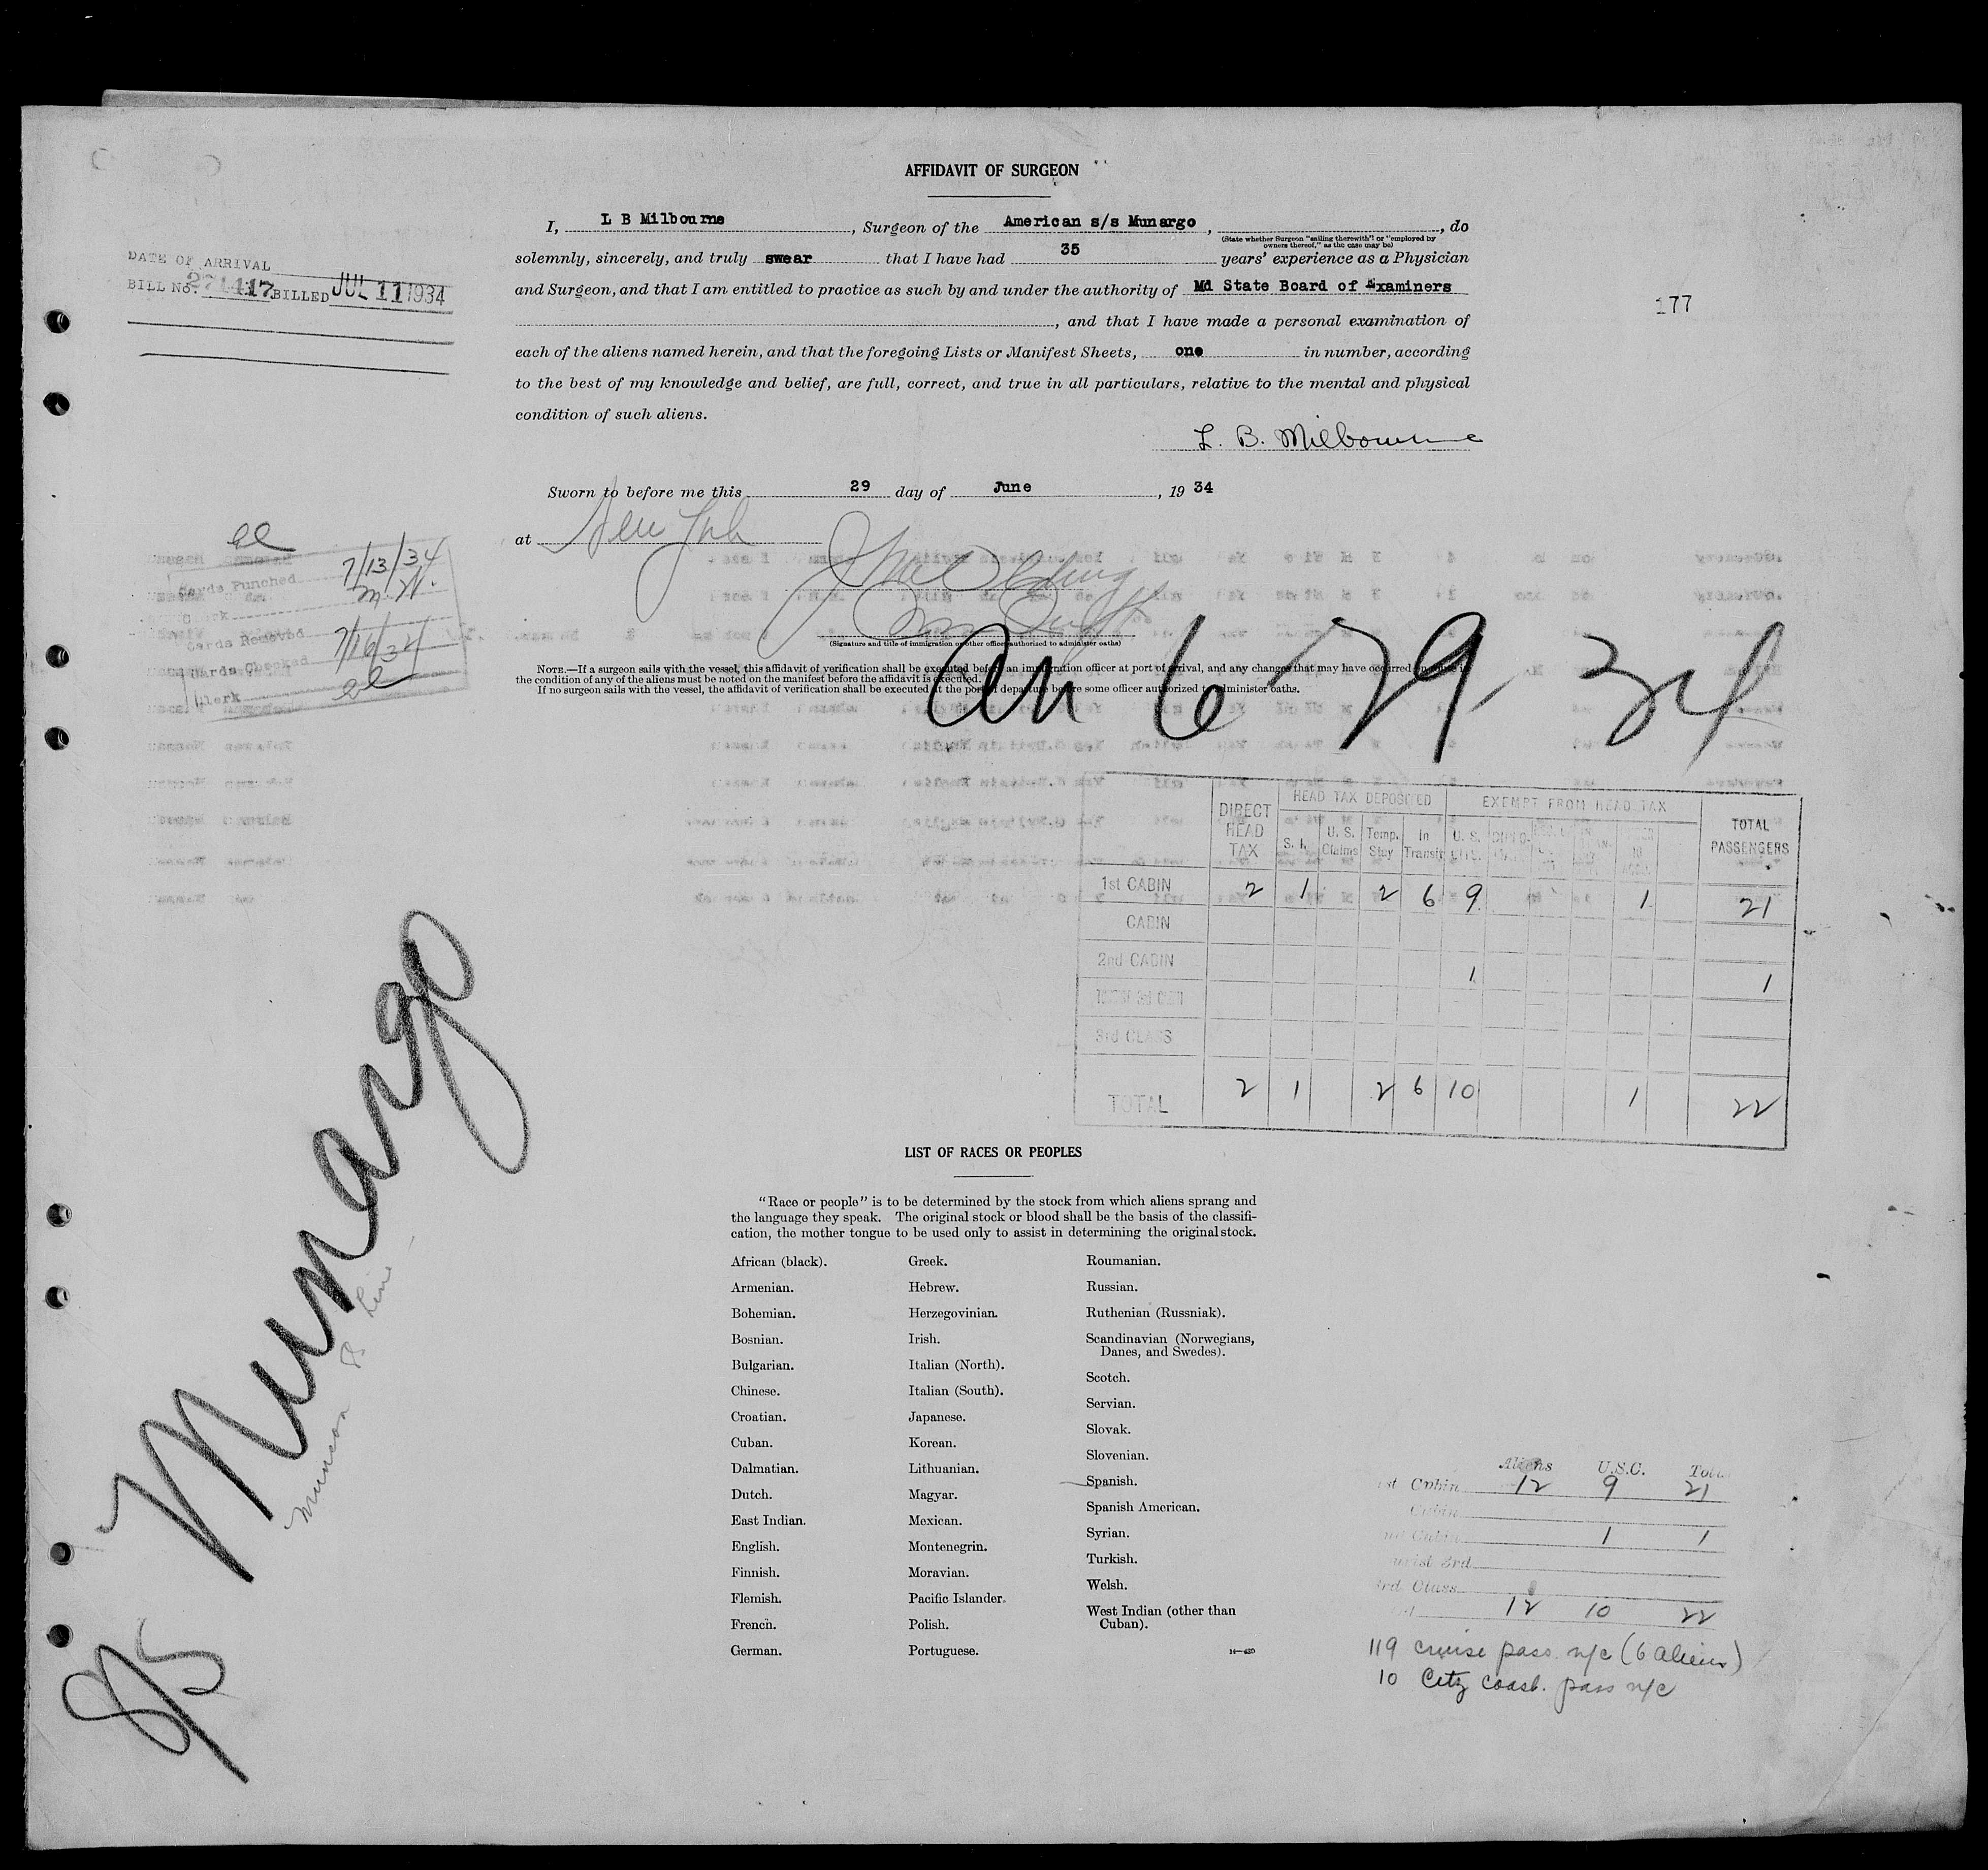 AFFIDAVIT OF SURGEON
I, L B Milbourne, Surgeon of the American s/s Munargo, , do
(State whether Surgeon "sailing therewith" or "employed by
owners thereof," as the case may be)
solemnly, sincerely, and truly swear that I have had 35 years' experience as a Physician
and Surgeon, and that I am entitled to practice as such by and under the authority of Md State Board of Examiners
, and that I have made a personal examination of
each of the aliens named herein, and that the foregoing Lists or Manifest Sheets, one in number, according
to the best of my knowledge and belief, are full, correct, and true in all particulars, relative to the mental and physical
condition of such aliens.
L. B. Milbourne
Sworn to before me this 29 day of June, 19 34
at New York
(Signature and title of immigration or other officer authorized to administer oaths)
NOTE.—If a surgeon sails with the vessel, this affidavit of verification shall be executed before an immigration officer at port of arrival, and any changes that may have occurred
the condition of any of the aliens must be noted on the manifest before the affidavit is executed.
If no surgeon sails with the vessel, the affidavit of verification shall be executed at the port of departure before some officer authorized to administer oaths.
DATE OF ARRIVAL
BILL No. 271417 BILLED JUL 11 1934
177
el
Cards Punched 7/13/34
Clerk M.N.
Cards Removed
Cards Checked 7/16/34
Clerk el
arr 6 29 34
DIRECT HEAD TAX HEAD TAX DEPOSITED EXEMPT FROM HEAD TAX TOTAL PASSENGERS
S. I. U. S. Claims Temp. Stay In Transit U. S. CITS.
1st CABIN 2 1 2 6 9 1 21
CABIN
2nd CABIN 1 1
3rd CLASS
TOTAL 2 1 2 6 10 1 22
S/S Munargo
Munson S. Line
LIST OF RACES OR PEOPLES
"Race or people" is to be determined by the stock from which aliens sprang and
the language they speak. The original stock or blood shall be the basis of the classifi-
cation, the mother tongue to be used only to assist in determining the original stock.
African (black).
Armenian.
Bohemian.
Bosnian.
Bulgarian.
Chinese.
Croatian.
Cuban.
Dalmatian.
Dutch.
East Indian.
English.
Finnish.
Flemish.
French.
German.
Greek.
Hebrew.
Herzegovinian.
Irish.
Italian (North).
Italian (South).
Japanese.
Korean.
Lithuanian.
Magyar.
Mexican.
Montenegrin.
Moravian.
Pacific Islander.
Polish.
Portuguese.
Roumanian.
Russian.
Ruthenian (Russniak).
Scandinavian (Norwegians,
Danes, and Swedes).
Scotch.
Servian.
Slovak.
Slovenian.
Spanish.
Spanish American.
Syrian.
Turkish.
Welsh.
West Indian (other than
Cuban).
Aliens U.S.C. Total
1st Cabin 12 9 21
Cabin
2nd Cabin 1 1
Tourist 3rd
3rd Class
12 10 22
119 cruise pass. n/c (6 aliens)
10 City coast. pass n/c